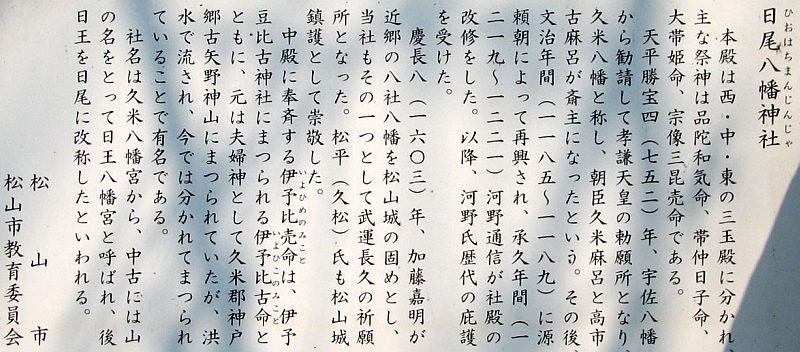 ひおはちまんじんじゃ
日尾八幡神社
本殿は西・中・東の三玉殿に分かれ、
主な祭神は品陀和気命、帯仲日子命、
大帯姫命、宗像三昆売命である。
天平勝宝四(七五二)年、宇佐八幡
から勧請して孝謙天皇の勅願所となり、
久米八幡と称し、朝臣久米麻呂と高市
古麻呂が斎主になったという。その後、
文治年間(一一八五〜一一八九)に源
頼朝によって再興され、承久年間(一
二一九〜一二二一)河野通信が社殿の
改修をした。以降、河野氏歴代の庇護
を受けた。
慶長八(一六〇三)年、加藤嘉明が
近郷の八社八幡を松山城の固めとし、
当社もその一つとして武運長久の祈願
所となった。松平(久松)氏も松山城
鎮護として崇敬した。
いよひめのみこと
中殿に奉斎する伊予比売命は、伊予
いよひこのみこと
豆比古神社にまつられる伊予比古命と
ともに、元は夫婦神として久米郡神戸
郷古矢野神山にまつられていたが、洪
水で流され、今では分かれてまつられ
ていることで有名である。
社名は久米八幡宮から、中古には山
の名をとって日王八幡宮と呼ばれ、後
日王を日尾に改称したといわれる。
松山市
松山市教育委員会